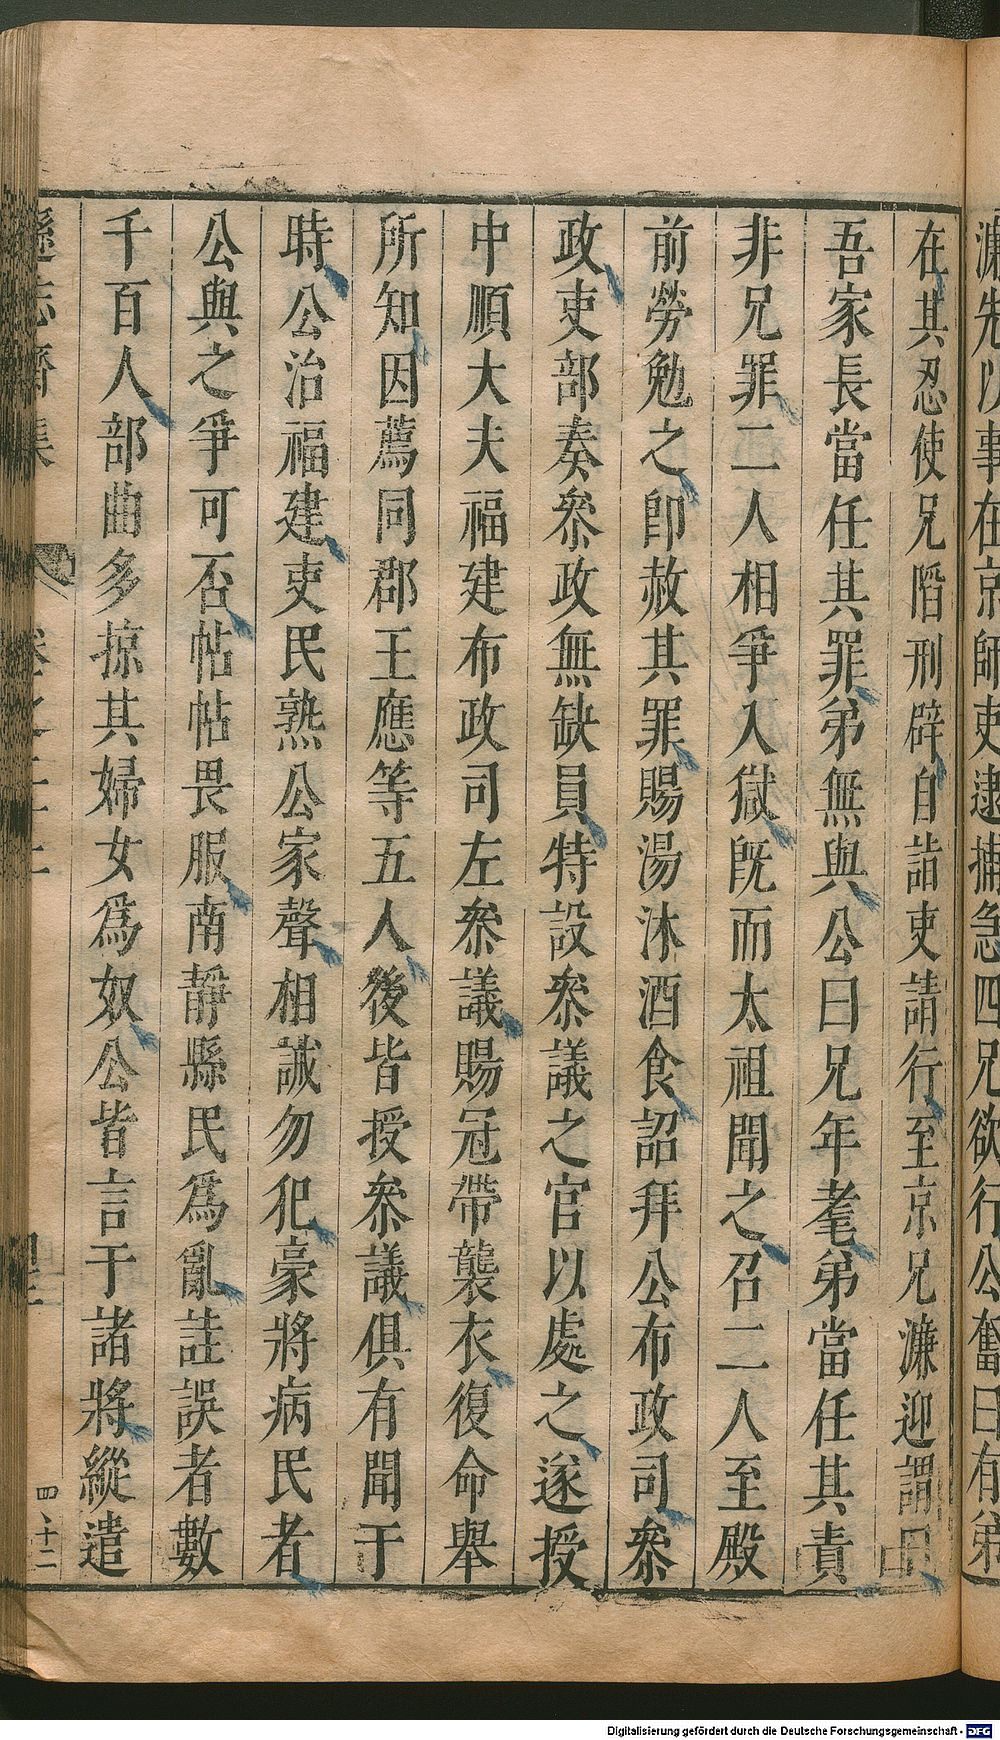 濂先以事在京師吏逮捕急四兄欲行公奮曰有弟
在其忍使兄䧟刑辟自詣吏請行至京兄濂迎謂曰
吾家長當任其罪弟無與公曰兄年耄弟當任其責
非兄罪二人相爭入獄旣而太祖聞之召二人至殿
前勞勉之卽赦其罪賜湯沐酒食詔拜公布政司叅
政吏部奏叅政無缺員特設叅議之官以處之遂授
中順大夫福建布政司左叅議賜冠帶襲衣復命舉
所知因薦同郡王應等五人後皆授叅議俱有聞于
時公治福建吏民熟公家聲相誡勿犯豪將病民者
公與之爭可否帖帖畏服南靜縣民爲亂詿誤者數
千百人部曲多掠其婦女爲奴公皆言于諸將縱遣
遜志齋集
卷之二十二
四十二
四、十二
Digitalisierung gefördert durch die Deutsche Forschungsgemeinschaft - DFG